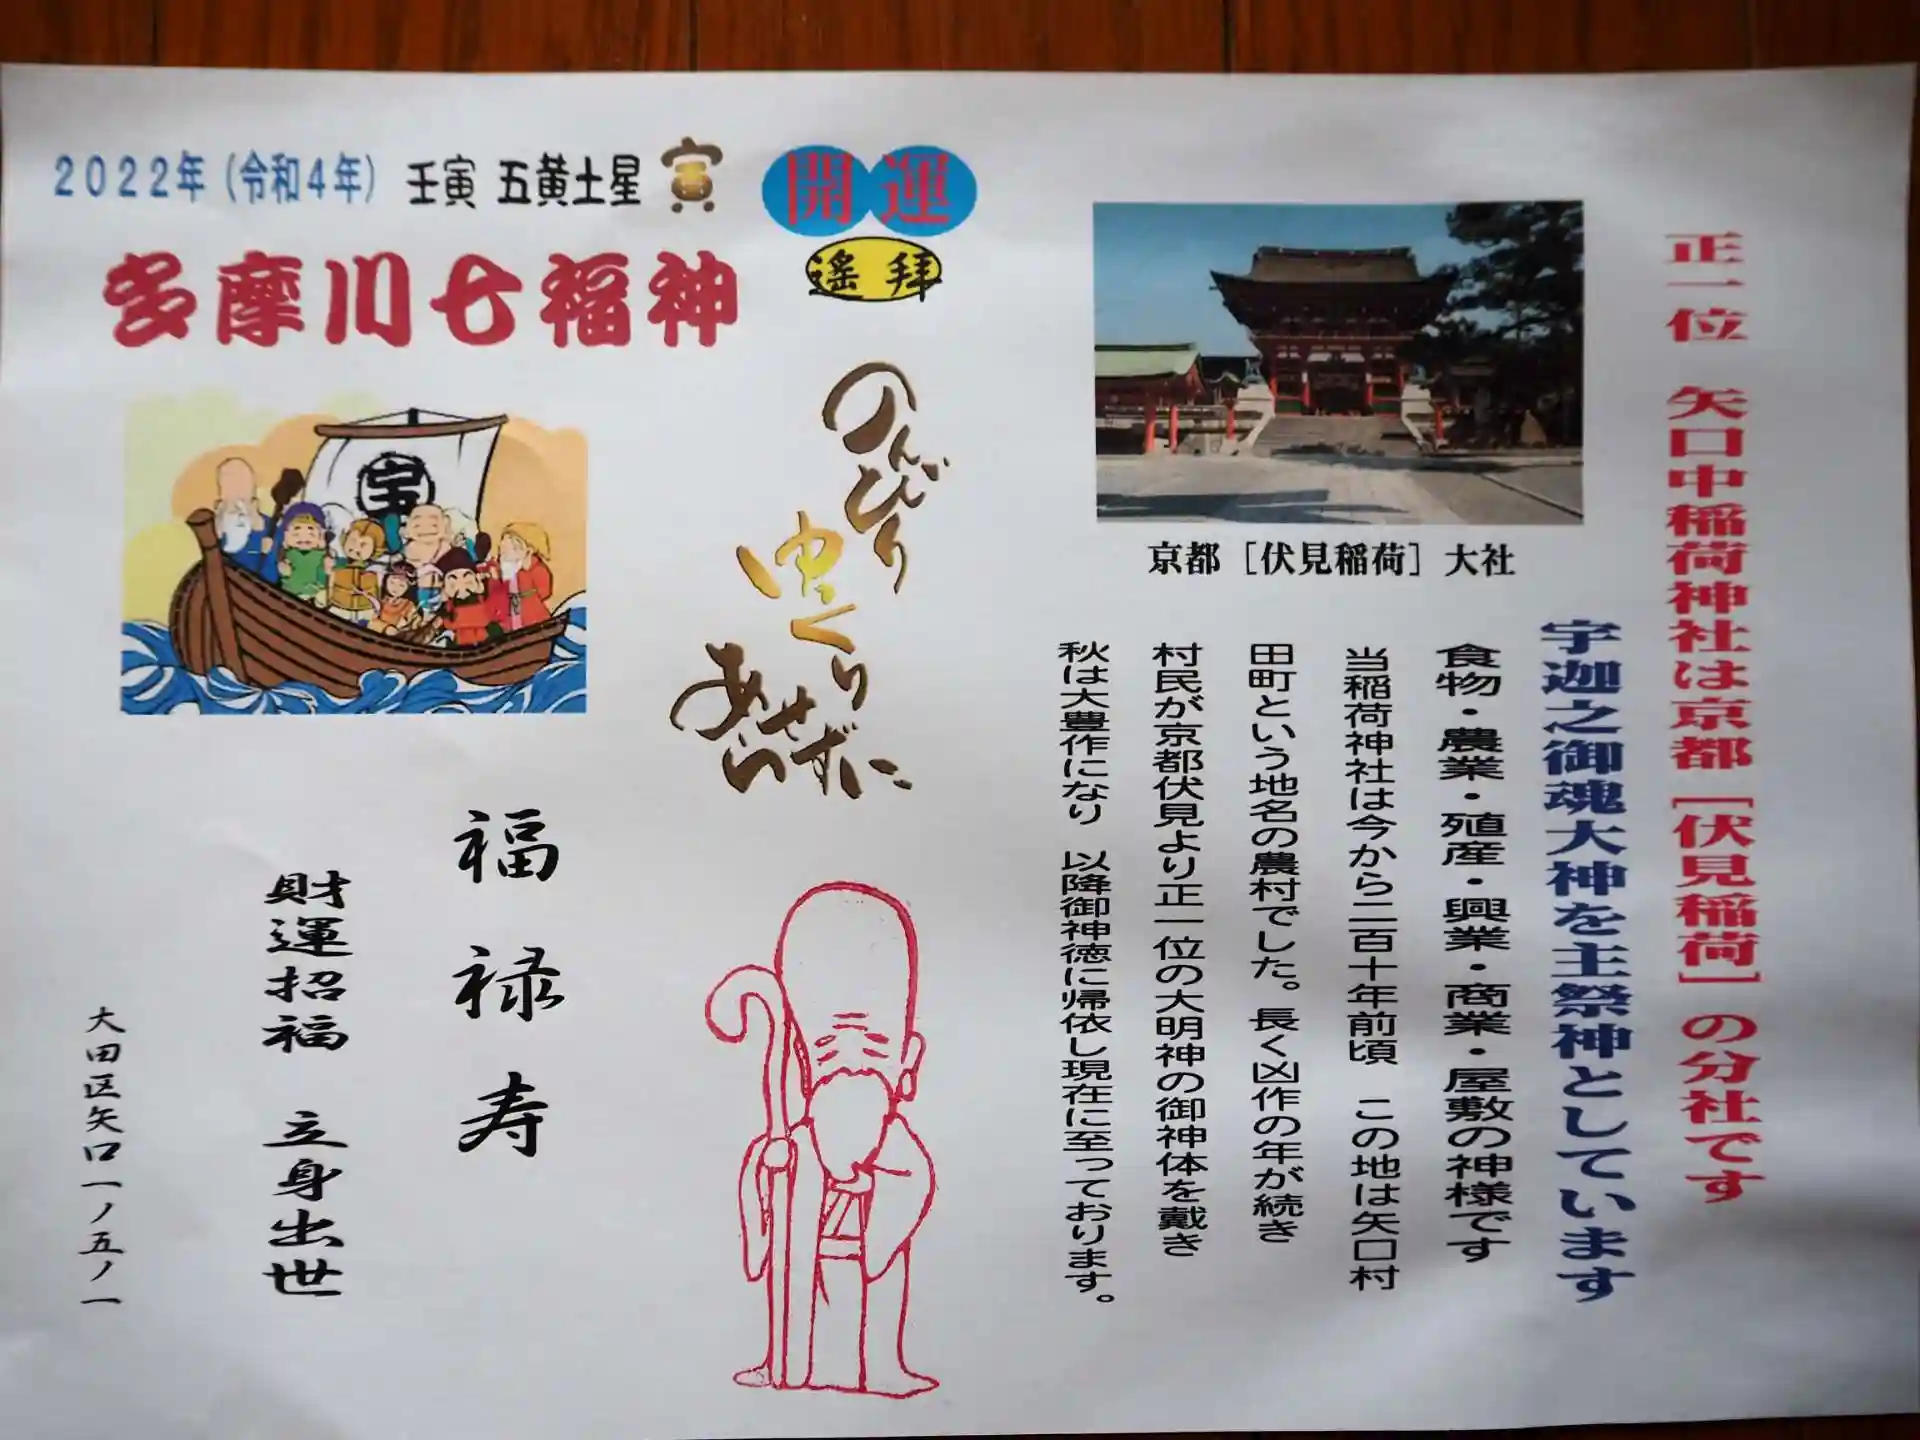 2022年(令和4年) 壬寅 五黄土星 寅
開運
遙拝
多摩川七福神
宝
のんびり
ゆっくり
あせらずに
福禄寿
財運招福 立身出世
大田区矢口一ノ五ノ一
正一位 矢口中稲荷神社は京都[伏見稲荷]の分社です
京都[伏見稲荷]大社
宇迦之御魂大神を主祭神としています
食物・農業・殖産・興業・商業・屋敷の神様です
当稲荷神社は今から二百十年前頃 この地は矢口村
田町という地名の農村でした。長く凶作の年が続き
村民が京都伏見より正一位の大明神の御神体を戴き
秋は大豊作になり 以降御神徳に帰依し現在に至っております。